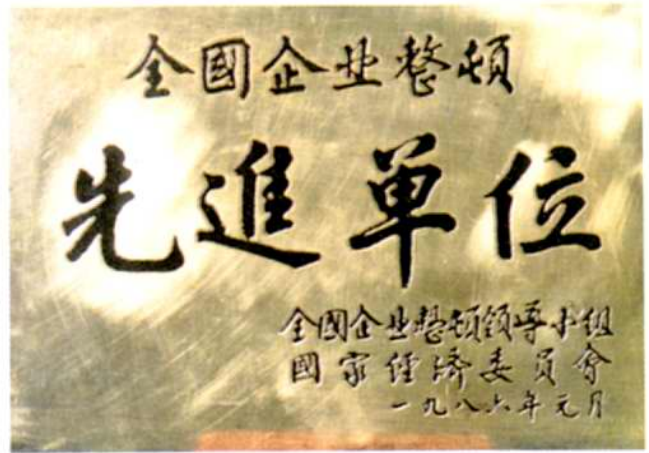 全國企业整顿
先進单位
全國企业整顿領导小组
國家经濟委員會
一九八六年元月